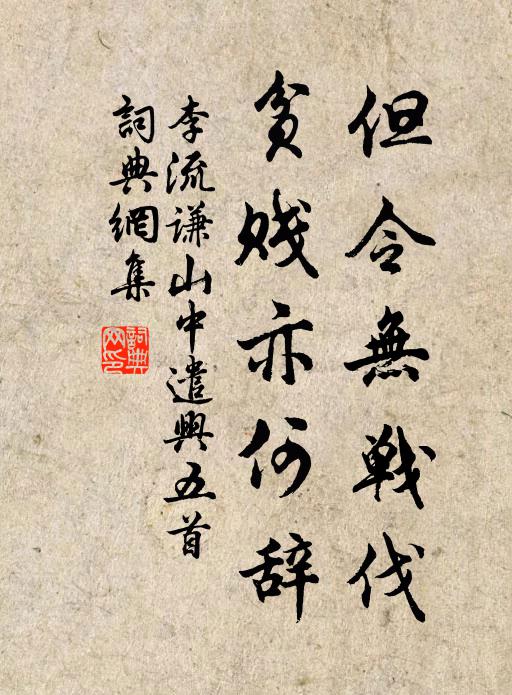 但令無戦伐
貧賤亦何辞
李流謙山中遣興五首
詞典網集
詞典网印